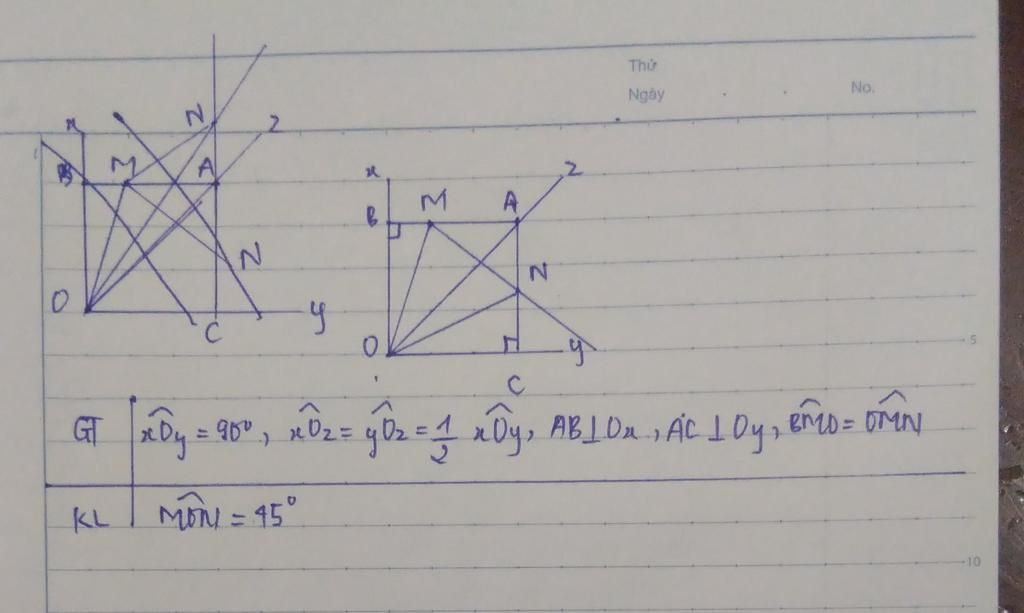 Thứ
Ngày . . No.
x N z
B M A
N
O C y
x z
B M A
N
O y
C
5
GT xÔy = 90°, xÔz = yÔz = 1/2 xÔy, AB⊥Ox, AC⊥Oy, BM̂O = OM̂N
KL MÔN = 45°
10